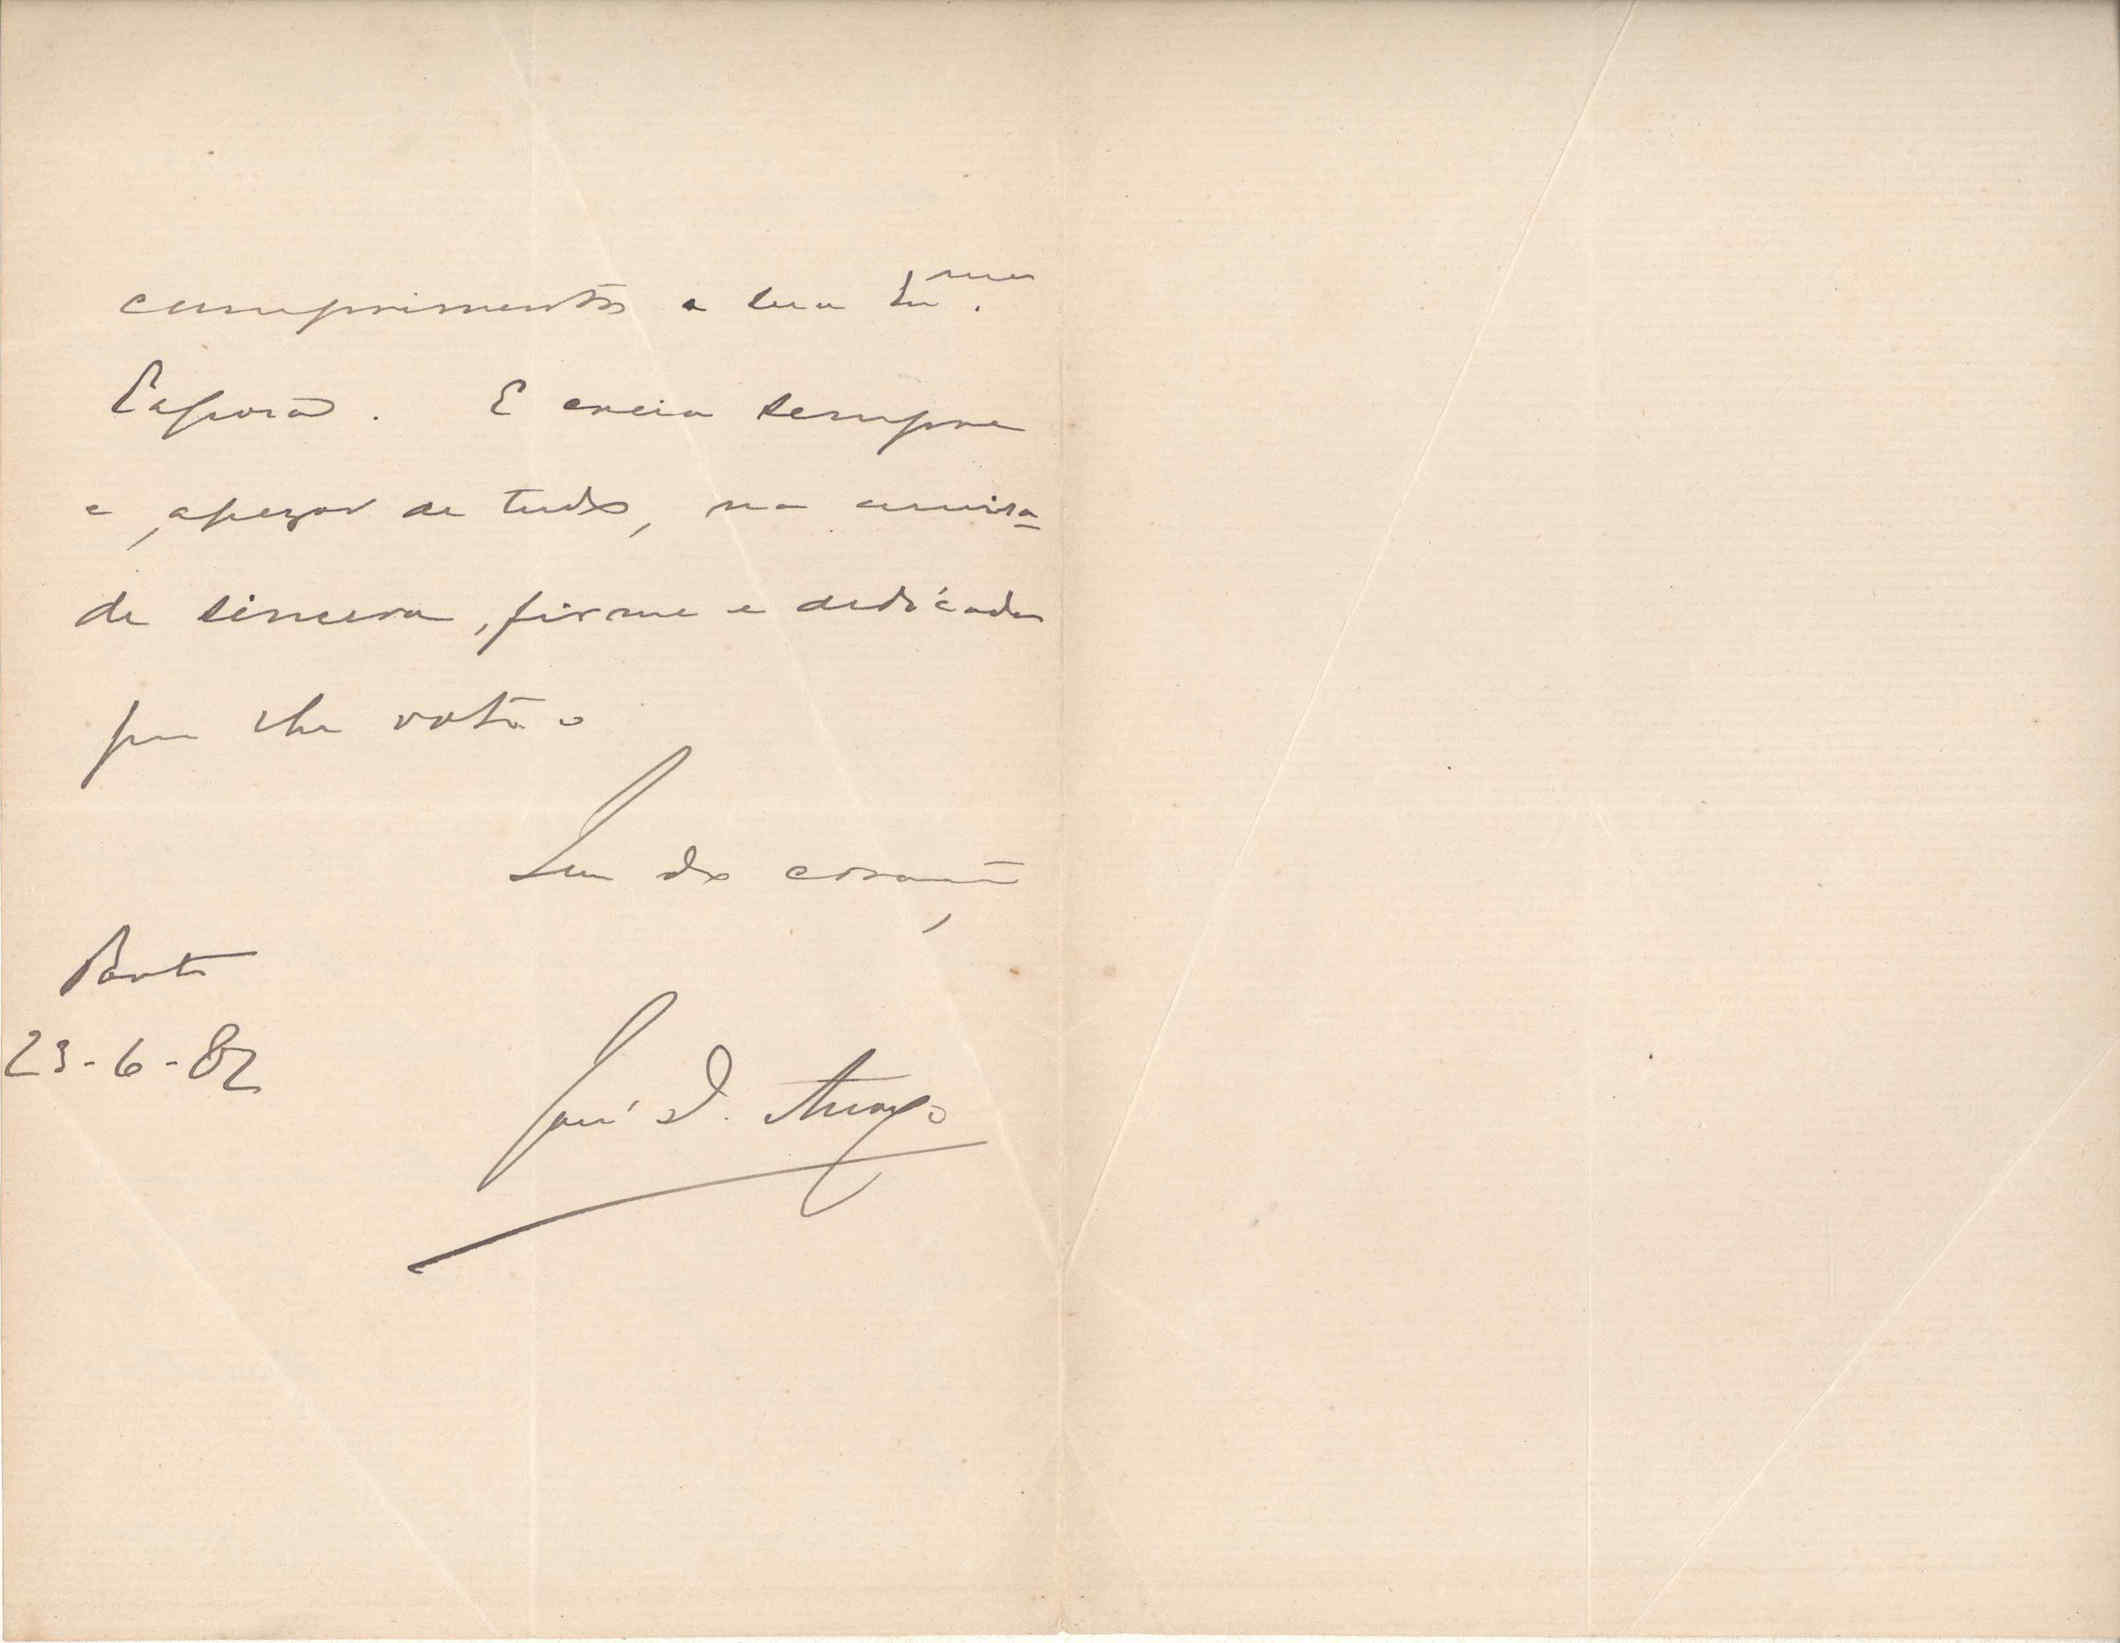 cumprimentos a sua Ex.ma
Esposa. E creia sempre
e, apezar de tudo, na amisa-
de sincera, firme e dedicada
que lhe vota o
Seu do coração
Porto
23-6-82
José d. Araujo